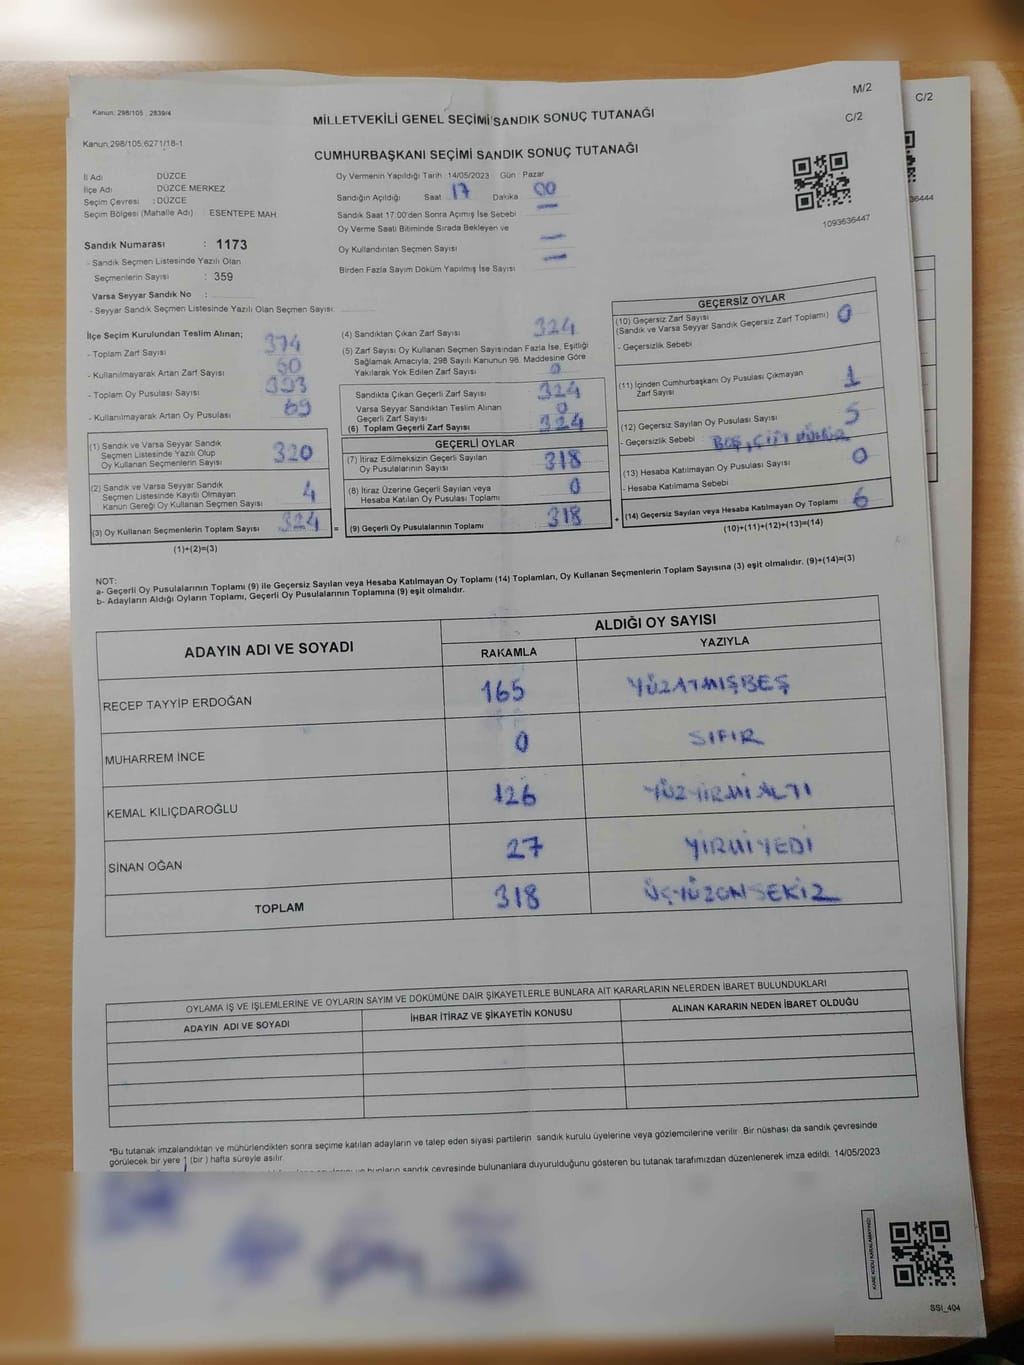 M/2
C/2
Kanun; 298/105 , 2839/4
MİLLETVEKİLİ GENEL SEÇİMİ SANDIK SONUÇ TUTANAĞI
C/2
Kanun;298/105;6271/18-1
CUMHURBAŞKANI SEÇİMİ SANDIK SONUÇ TUTANAĞI
İl Adı DÜZCE
İlçe Adı DÜZCE MERKEZ
Seçim Çevresi : DÜZCE
Seçim Bölgesi (Mahalle Adı) : ESENTEPE MAH.
Oy Vermenin Yapıldığı Tarih : 14/05/2023 Gün : Pazar
Sandığın Açıldığı Saat 17 Dakika 00
Sandık Saat 17:00'den Sonra Açımış İse Sebebi
Oy Verme Saati Bitiminde Sırada Bekleyen ve
Oy Kullandırılan Seçmen Sayısı
Birden Fazla Sayım Döküm Yapılmış İse Sayısı
1093636447
36444
Sandık Numarası : 1173
- Sandık Seçmen Listesinde Yazılı Olan
Seçmenlerin Sayısı : 359
Varsa Seyyar Sandık No :
- Seyyar Sandık Seçmen Listesinde Yazılı Olan Seçmen Sayısı:
İlçe Seçim Kurulundan Teslim Alınan;
- Toplam Zarf Sayısı 374
- Kullanılmayarak Artan Zarf Sayısı 50
- Toplam Oy Pusulası Sayısı 393
- Kullanılmayarak Artan Oy Pusulası 69
(1) Sandık ve Varsa Seyyar Sandık
Seçmen Listesinde Yazılı Olup
Oy Kullanan Seçmenlerin Sayısı 320
(2) Sandık ve Varsa Seyyar Sandık
Seçmen Listesinde Kayıtlı Olmayan
Kanun Gereği Oy Kullanan Seçmen Sayısı 4
(3) Oy Kullanan Seçmenlerin Toplam Sayısı 324 =
(1)+(2)=(3)
(4) Sandıktan Çıkan Zarf Sayısı 324
(5) Zarf Sayısı Oy Kullanan Seçmen Sayısından Fazla İse, Eşitliği
Sağlamak Amacıyla, 298 Sayılı Kanunun 98. Maddesine Göre
Yakılarak Yok Edilen Zarf Sayısı 0
Sandıkta Çıkan Geçerli Zarf Sayısı 324
Varsa Seyyar Sandıktan Teslim Alınan
Geçerli Zarf Sayısı 0
(6) Toplam Geçerli Zarf Sayısı 324
GEÇERLİ OYLAR
(7) İtiraz Edilmeksizin Geçerli Sayılan
Oy Pusulalarının Sayısı 318
(8) İtiraz Üzerine Geçerli Sayılan veya
Hesaba Katılan Oy Pusulası Toplamı 0
(9) Geçerli Oy Pusulalarının Toplamı 318 +
GEÇERSİZ OYLAR
(10) Geçersiz Zarf Sayısı
(Sandık ve Varsa Seyyar Sandık Geçersiz Zarf Toplamı) 0
- Geçersizlik Sebebi
(11) İçinden Cumhurbaşkanı Oy Pusulası Çıkmayan
Zarf Sayısı 1
(12) Geçersiz Sayılan Oy Pusulası Sayısı 5
- Geçersizlik Sebebi BOŞ, ÇİFT MÜHÜR
(13) Hesaba Katılmayan Oy Pusulası Sayısı 0
- Hesaba Katılmama Sebebi
(14) Geçersiz Sayılan veya Hesaba Katılmayan Oy Toplamı 6
(10)+(11)+(12)+(13)=(14)
NOT:
a- Geçerli Oy Pusulalarının Toplamı (9) ile Geçersiz Sayılan veya Hesaba Katılmayan Oy Toplamı (14) Toplamları, Oy Kullanan Seçmenlerin Toplam Sayısına (3) eşit olmalıdır. (9)+(14)=(3)
b- Adayların Aldığı Oyların Toplamı, Geçerli Oy Pusulalarının Toplamına (9) eşit olmalıdır.
ADAYIN ADI VE SOYADI ALDIĞI OY SAYISI
RAKAMLA YAZIYLA
RECEP TAYYİP ERDOĞAN 165 YÜZATMIŞBEŞ
MUHARREM İNCE 0 SIFIR
KEMAL KILIÇDAROĞLU 126 YÜZYİRMİALTI
SİNAN OĞAN 27 YİRMİYEDİ
TOPLAM 318 ÜÇYÜZONSEKİZ
OYLAMA İŞ VE İŞLEMLERİNE VE OYLARIN SAYIM VE DÖKÜMÜNE DAİR ŞİKAYETLERLE BUNLARA AİT KARARLARIN NELERDEN İBARET BULUNDUKLARI
ADAYIN ADI VE SOYADI İHBAR İTİRAZ VE ŞİKAYETİN KONUSU ALINAN KARARIN NEDEN İBARET OLDUĞU
*Bu tutanak imzalandıktan ve mühürlendikten sonra seçime katılan adayların ve talep eden siyasi partilerin sandık kurulu üyelerine veya gözlemcilerine verilir. Bir nüshası da sandık çevresinde
görülecek bir yere 1 (bir ) hafta süreyle asılır.
ve bunların sandık çevresinde bulunanlara duyurulduğunu gösteren bu tutanak tarafımızdan düzenlenerek imza edildi. 14/05/2023
KARE KODU KARALAMAYINIZ!
SSİ_404